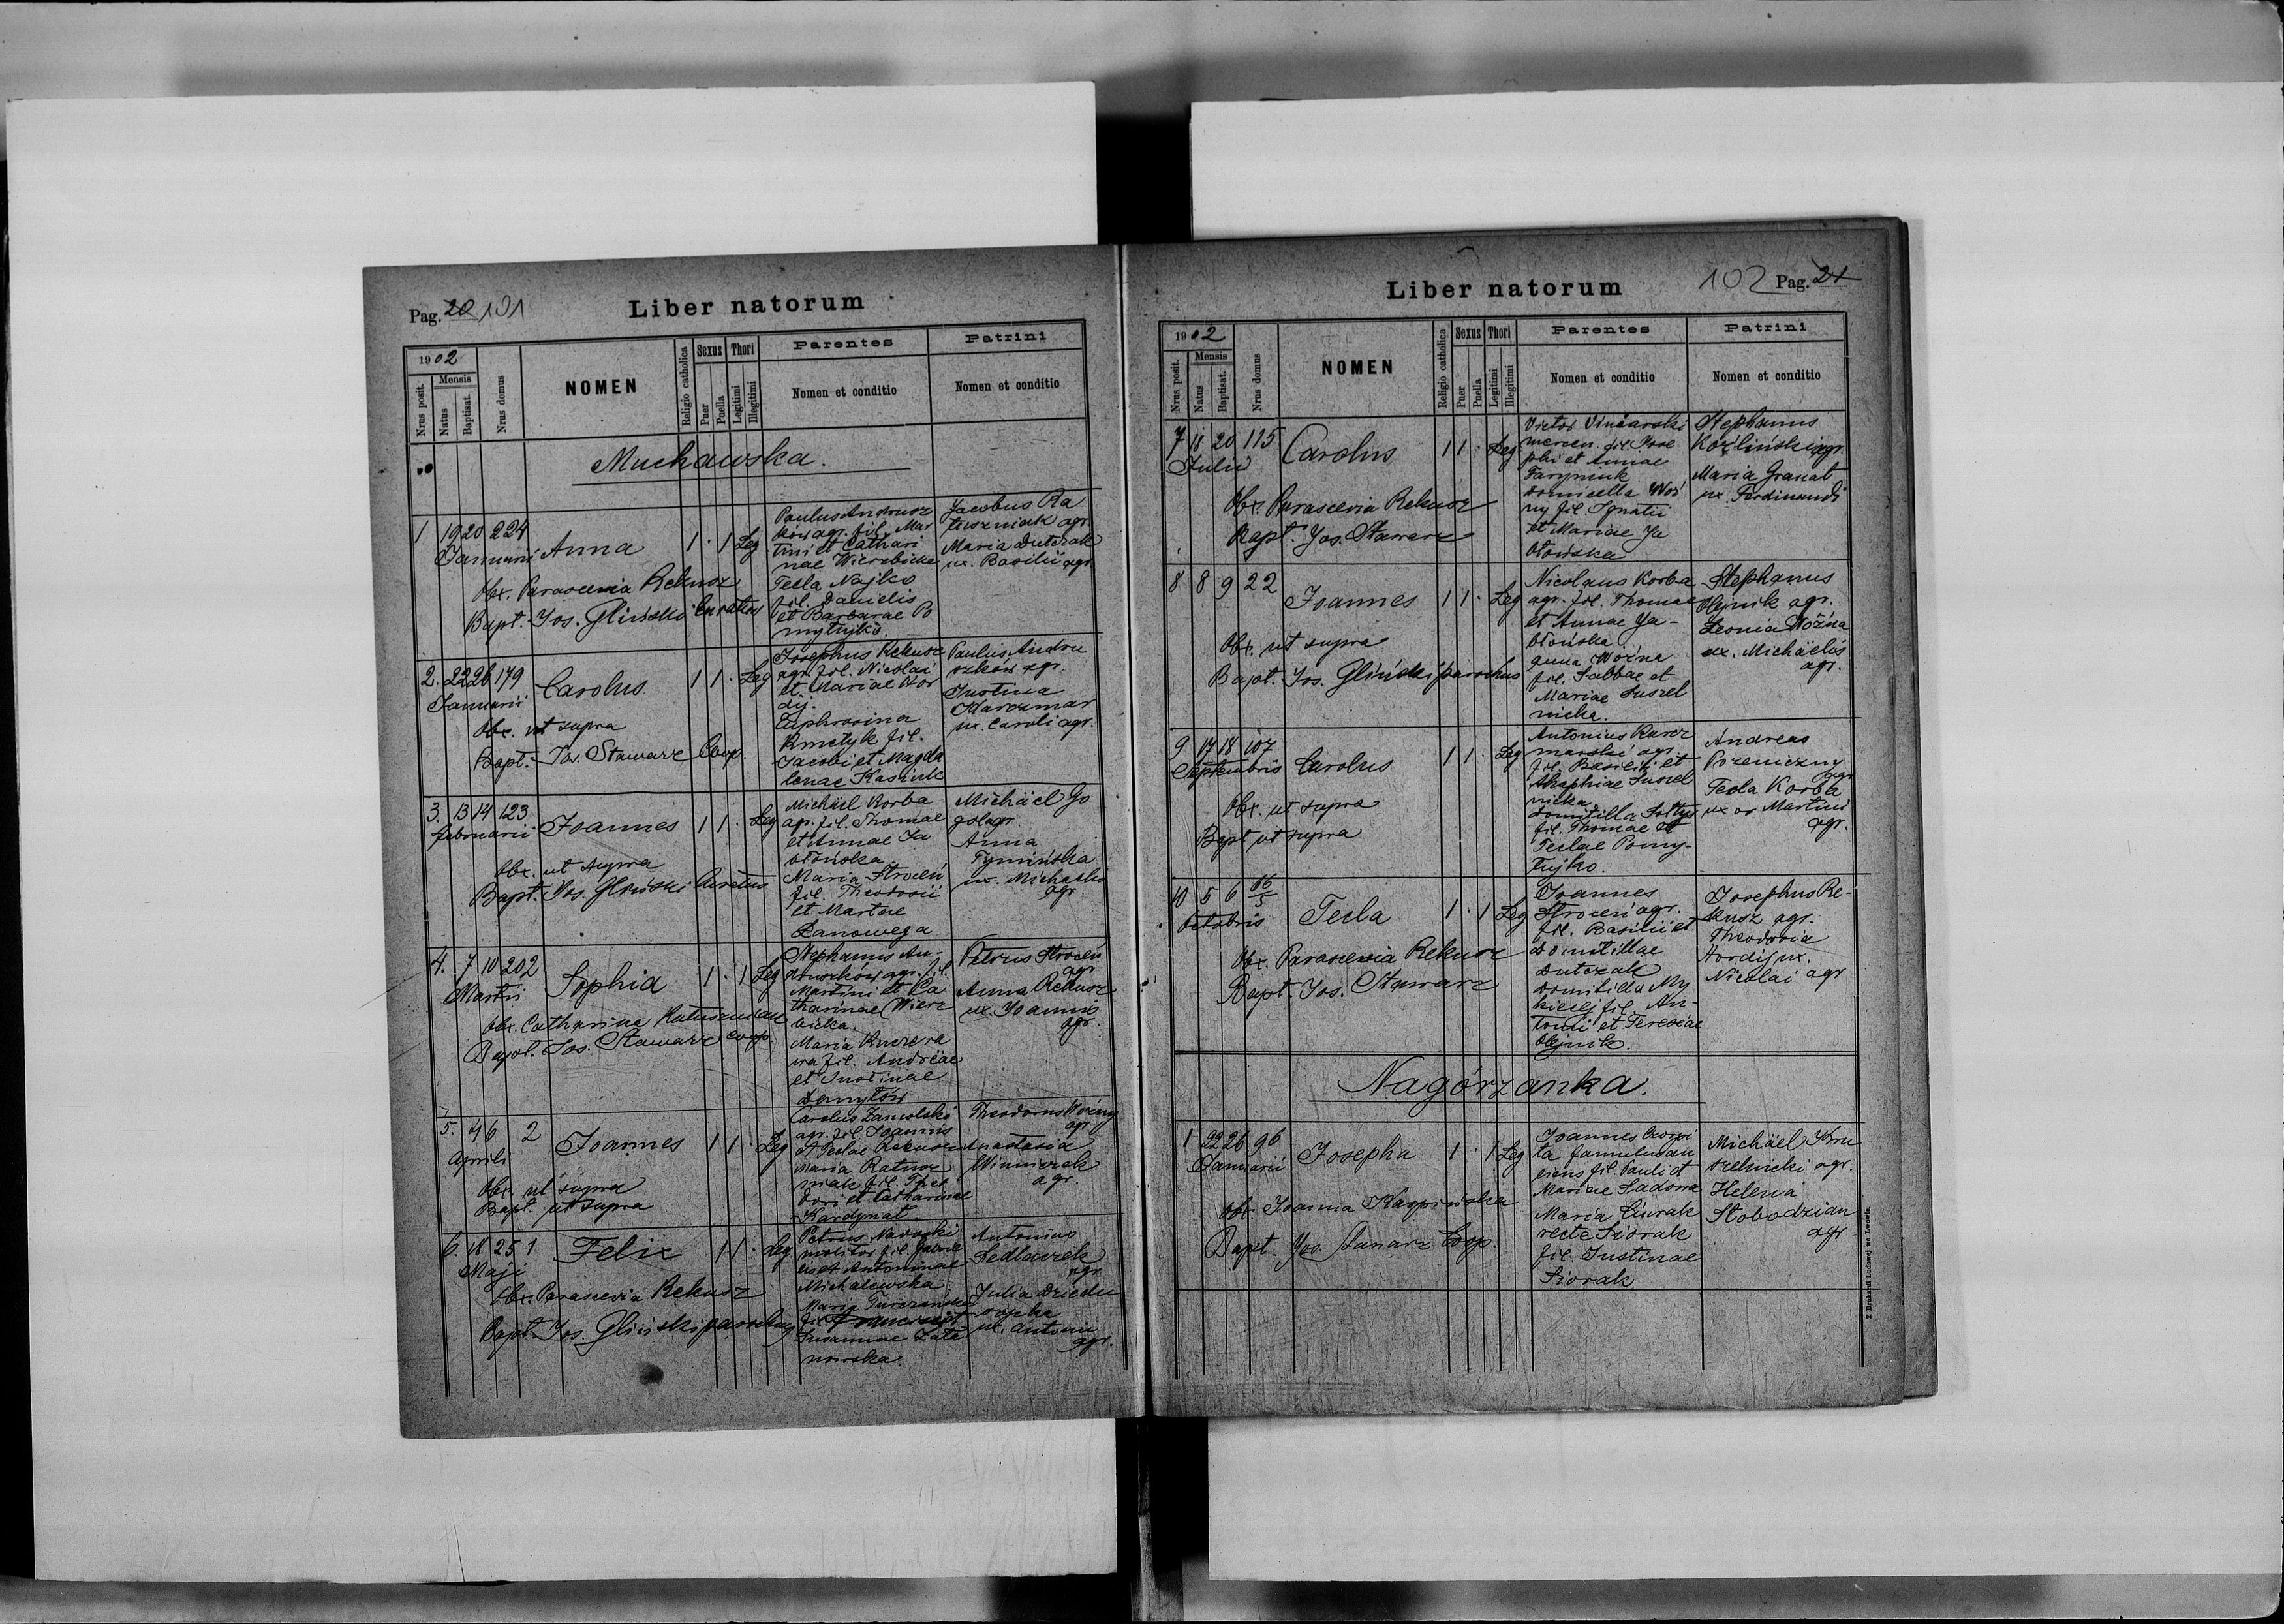 Pag. 20 101
Liber natorum
1902
Nrus posit.
Mensis
Natus
Baptisat.
Nrus domus
NOMEN
Religio catholica
Sexus
Puer
Puella
Thori
Legitimi
Illegitimi
Parentes
Nomen et conditio
Patrini
Nomen et conditio
Muchawska.
1 19 20 224
Januarii Anna 1 · 1 Leg
Obx. Parascevia Rekusz
Bapt. Jos. Gliński Curatus
Paulus Andrusz
ków agr. fil. Mar
tini et Cathari
nae Wierzbicka
Tecla Najko
fil. Danielis
et Barbarae Po
mytujko.
Jacobus Ra
tuszniak agr.
Maria Dutczak
ux. Basilii agr.
2. 22 26 179
Januarii Carolus 1 1 · Leg
Obx. ut supra
Bapt. Jos. Stawarz Coop.
Josephus Rekusz
agr. fil. Nicolai
et Mariae Hor
dij.
Euphrosina
Kmetyk fil.
Jacobi et Magda
lenae Kasiuk
Paulus Andru
szków agr.
Justina
Karczmar
ux. Caroli agr.
3. 13 14 123
Februarii Joannes 1 1 · Leg
Obx. ut supra
Bapt. Jos. Gliński Curatus
Michäel Korba
agr. fil. Thomae
et Annae Ja
błońska
Maria Stroceń
fil. Theodosii
et Martae
Zanowega
Michäel Go
gol agr.
Anna
Tymińska
ux. Michaelis
agr
4. 7 10 202
Martii Sophia 1 · 1 Leg
Obx. Catharina
Bapt. Jos. Stawarz coop.
Stephanus An
druszków agr. fil.
Martini et Ca
tharinae Wierz
bicka.
Maria
fil. Andreae
et Justinae
Danyłów
Petrus Stroceń
agr
Anna Rekusz
ux. Joannis
agr.
5. 4 6 2
Aprili Joannes 1 1 · Leg
Obx. ut supra
Bapt. ut supra
Carolus Zamolski
agr. fil. Joannis
et Teclae Rekusz
Maria Ratusz
niak fil. Theo
dori et Catharinae
Kardynał.
Theodorus Woźny
agr
Anastasia
Winniczek
agr.
6. 18 25 1
Maji Felix 1 1 · Leg
Obx. Parascevia Rekusz
Bapt. Jos. Gliński parochus
Petrus
molitor fil.
et Antoninae
Michalewska
Maria Turczańska
fil.
Susannae Zata
nowska.
Antonius
Sedlaczek
agr
Julia
ux. Antonii
agr.
Liber natorum
102 Pag. 21
1902
Nrus posit.
Mensis
Natus
Baptisat.
Nrus domus
NOMEN
Religio catholica
Sexus
Puer
Puella
Thori
Legitimi
Illegitimi
Parentes
Nomen et conditio
Patrini
Nomen et conditio
7 11 20 115
Julii Carolus 1 1 · Leg
Obx. Parascevia Rekusz
Bapt. Jos. Stawarz
Victor Vinčarski
mercen. fil. Jose
phi et Annae
Faryniuk
Domicella Woź
ny fil Ignatii
et Mariae Ja
błońska
Stephanus
Koźliński agr.
Maria Granat
ux. Ferdinandi
8 8 9 22
Joannes 1 1 · Leg
Obx. ut supra
Bapt. Jos. Gliński parochus
Nicolaus Korba
agr. fil. Thomae
et Annae Ja-
błońska
Anna Woźna
fil. Sabbae et
Mariae Suszel
nicka.
Stephanus
Olejnik agr.
Leonia Woźna
ux. Michäelis
agr.
9 17 18 107
Septembris Carolus 1 1 · Leg
Obx. ut supra
Bapt ut supra
Antonius Karcz
marski agr.
fil. Basilii et
Agaphiae Suszel
nicka
Domitilla Sołtys
fil. Thomae et
Teclae Pomy-
tujko.
Andreas
Pszeniczny
agr
Tecla Korba
ux Martini
agr.
10 5 6 66/5
Octobris Tecla 1 · 1 Leg
Obx. Parascevia Rekusz
Bapt. Jos. Stawarz
Joannes
Stroceń agr.
fil. Basilii et
Domitillae
Dutczak
Domitilla My
kiciej fil. An-
tonii et Teresiae
Olejnik.
Josephus Re-
kusz agr.
Theodosia
Hordij ux.
Nicolai agr
Nagórzanka.
1 22 26 96
Januarii Josepha 1 · 1 Leg
Obx. Joanna Karpińska
Bapt. Jos. Stawarz Coop.
Joannes
ta
fil. Pauli et
Mariae Sadowa
Maria Ciurak
recte Siorak
fil. Justinae
Siorak
Michäel
agr.
Helena
Słobodzian
agr
Z Drukarni Ludowej we Lwowie.